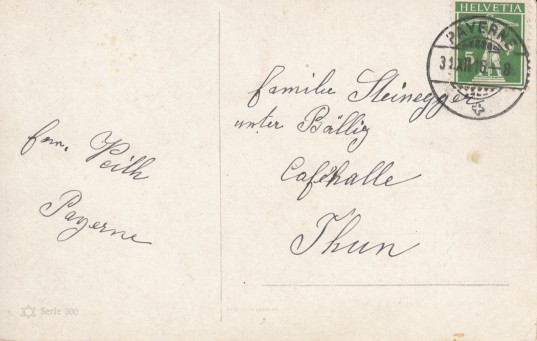 HELVETIA
PAYERNE
31.XII.16.-8
5
Familie Steinegger
unter Bälliz
Caféhalle
Thun
fam. Weith
Payerne
Serie 300